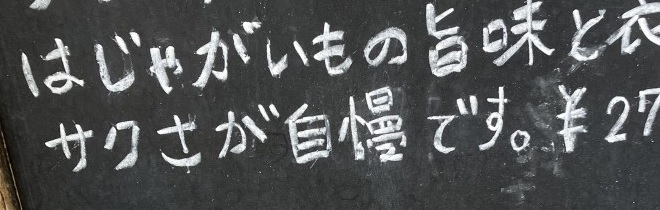 はじゃがいもの旨味と衣
サクさが自慢です。¥27